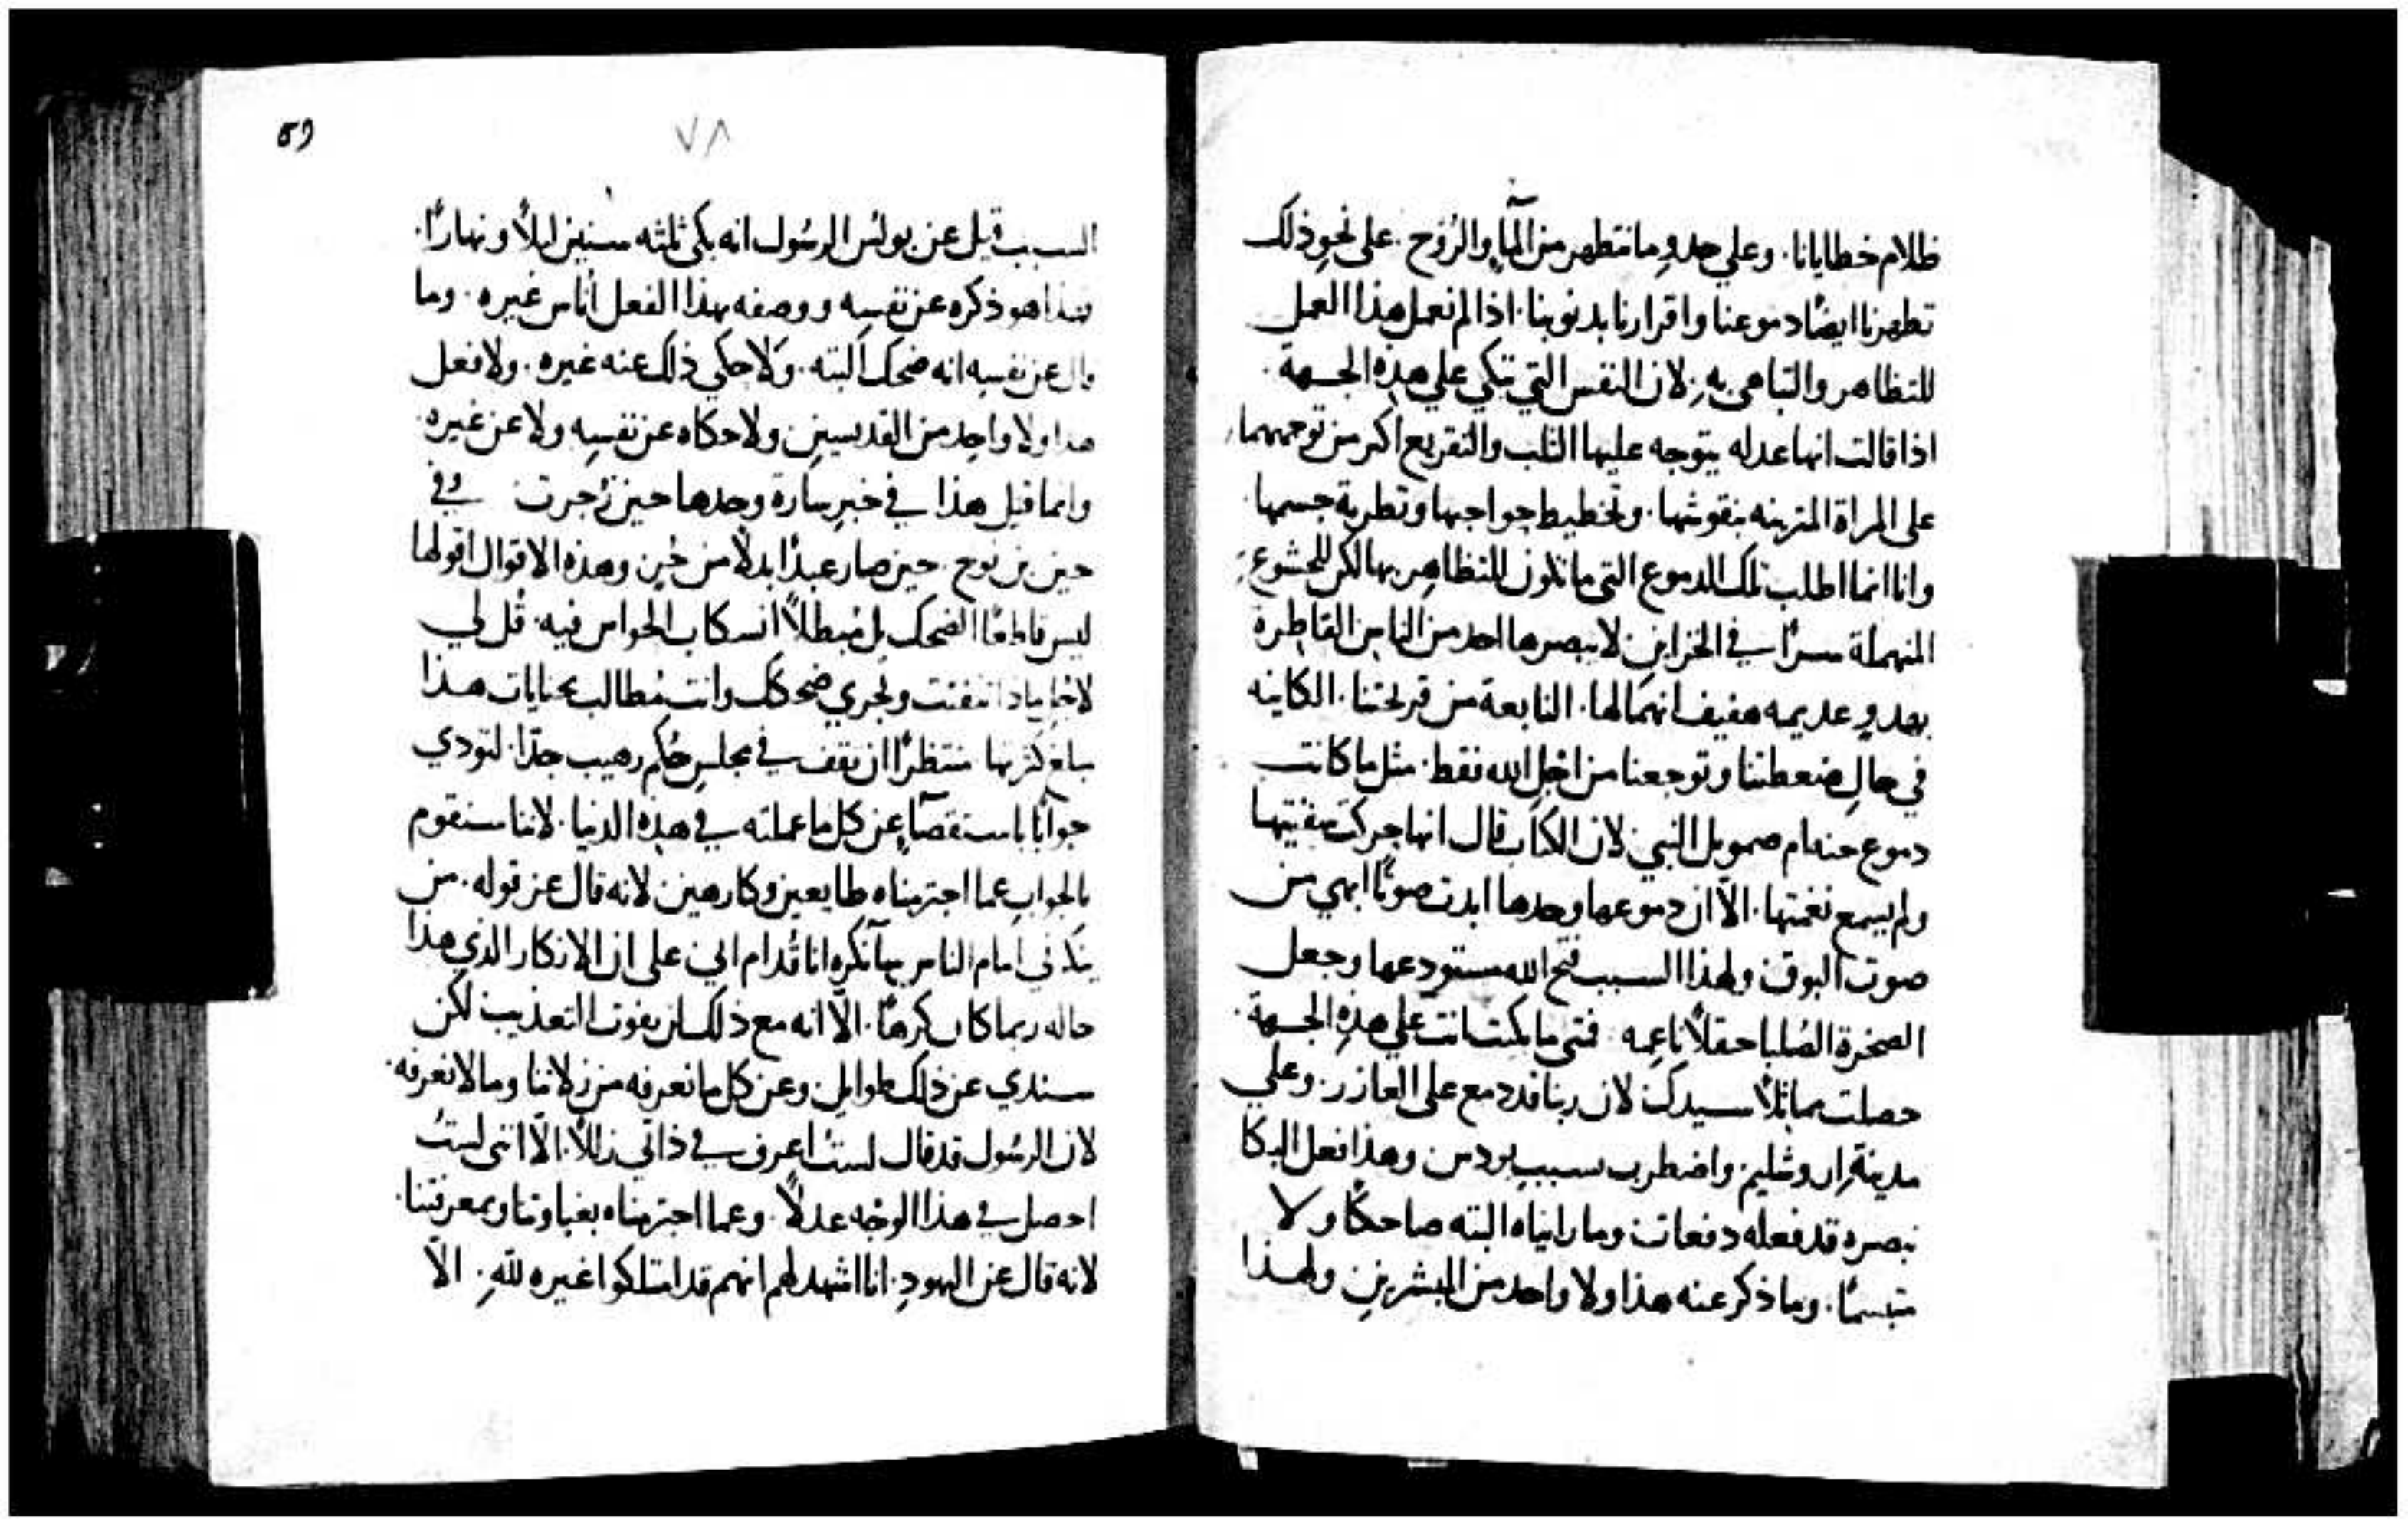 ظلام خطايانا. وعلي حدو ما نتطهر من المآء والرُوح. على نحو ذلك
تطهرنا ايضًا دموعنا واقرارنا بدنوبنا. اذا لم نعمل هذا العمل
للتظاهر والتباهي بهِ. لان النفس التي تبكي علي هذه الجهة.
اذا قالت انها عدله يتوجه عليها الثلب والتقريع اكثر من توجههما
على المراة المتزينه بنقوشها. وتخطيط حواجبها وتطرية جسمها
وانا انما اطلب تلك الدموع التي ما تكون للتظاهر بها لكن للخشوع.
المنهملة سرًا في الخزاين لا يبصرها احد من الناس القاطرة
بهدوٍ عديمه هفيف انهمالها. النابعة من قريحتنا. الكاينه
في حالِ ضغطتنا وتوجعنا من اجل الله فقط. مثل ما كانت
دموع حنه ام صمويل النبي لان الكتاب قال انها حركت شفتيها
ولم يسمع نغمتها. الاّ ان دموعها وحدها ابدت صوتًا ابهي من
صوت البوق ولهذا السبب فتح الله مستودعها وجعل
الصخرة الصُلبا حقلاً ناعمه فمتى ما بكيت انت علي هذه الجهة.
حصلت مماثلاً سيدك لان ربنا قد دمع على العازر. وعلي
مدينة اروشليم واضطرب بسبب يودس وهذا فعل البكا
نبصره قد فعله دفعات وما رايناه البته ضاحكًا ولا
متبسمًا. وما ذكر عنه هذا ولا واحد من المبشرين ولهذا
٥٩
٧٨
السبب قيل عن بولس الرسُول انه بكى ثلثه سنين ليلاً ونهارًا.
فهذا هو ذكره عن نفسِه ووصفه بهذا الفعل اناس غيره. وما
قال عن نفسِه انه ضحك البته. ولا حكي ذلك عنه غيره. ولا فعل
هذا ولا واحد من القديسين ولا حكاه عن نفسِه ولا عن غيره
وانما قيل هذا في خبر سارة وحدها حين زُجرت وفي
حين بن نوح. حين صار عبدًا بدلاً من حُرٍ وهذه الاقوال اقولها
ليس قاطعًا الضحك بل مُبطلاً انسكاب الحواس فيه. قُل لي
لاجل ماذا تتفتت وتجري ضحكك وانت مُطالب بجنايات هذا
مبلغ كثرتها منتظرًا ان تقف في مجلسِ حُكم رهيب جدًا. لتودي
جوابًا باستقصآءٍ عن كل ما عملته في هذه الدنيا. لاننا سنقوم
بالجواب عما اجترمناه طايعين وكارهين لانه قال عن قوله. من
ينكرني امام الناس سانكره انا قدام ابي على ان الانكار الذي هذا
حاله ربما كان كرهًا. الاّ انه مع ذلك لن يفوت التعذيب لكن
سندي عن ذلك طوايل وعن كل ما نعرفه من زلاتنا وما لا نعرفه.
لان الرسُول قد قال لستُ اعرف في ذاتي زللاً. الاّ انني لستُ
احصل في هذا الوجه عدلاً. وعما اجترمناه بغباوتنا وبمعرفتنا.
لانه قال عن اليهودِ. انا اشهد لهم انهم قد امتلكوا غيره للهِ. الاّ